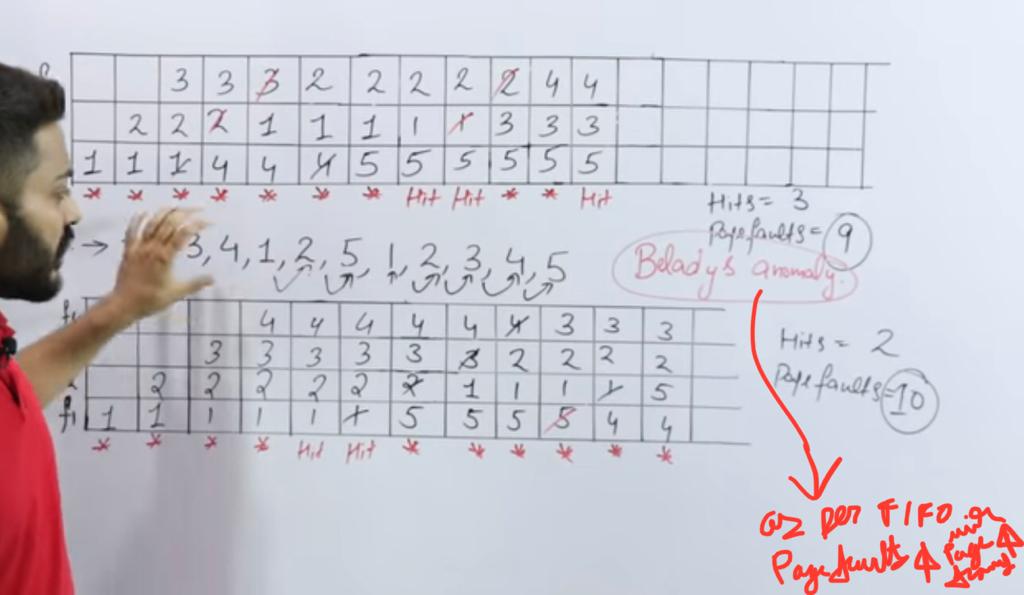 3 3 3 2 2 2 2 2 4 4
2 2 2 1 1 1 1 1 3 3 3
1 1 1 4 4 4 5 5 5 5 5 5
* * * * * * * Hit Hit * * Hit
Hits = 3
Page faults = 9
→ 3, 4, 1, 2, 5, 1, 2, 3, 4, 5
Belady's anomaly.
4 4 4 4 4 4 3 3 3
3 3 3 3 3 3 2 2 2 2
2 2 2 2 2 2 1 1 1 1 5
f1 1 1 1 1 1 1 5 5 5 5 4 4
* * * * Hit Hit * * * * * *
Hits = 2
Page faults = 10
as per FIFO
Page faults ↑ Page ↑